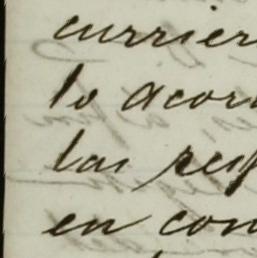 currier
lo acor
las resp
en con